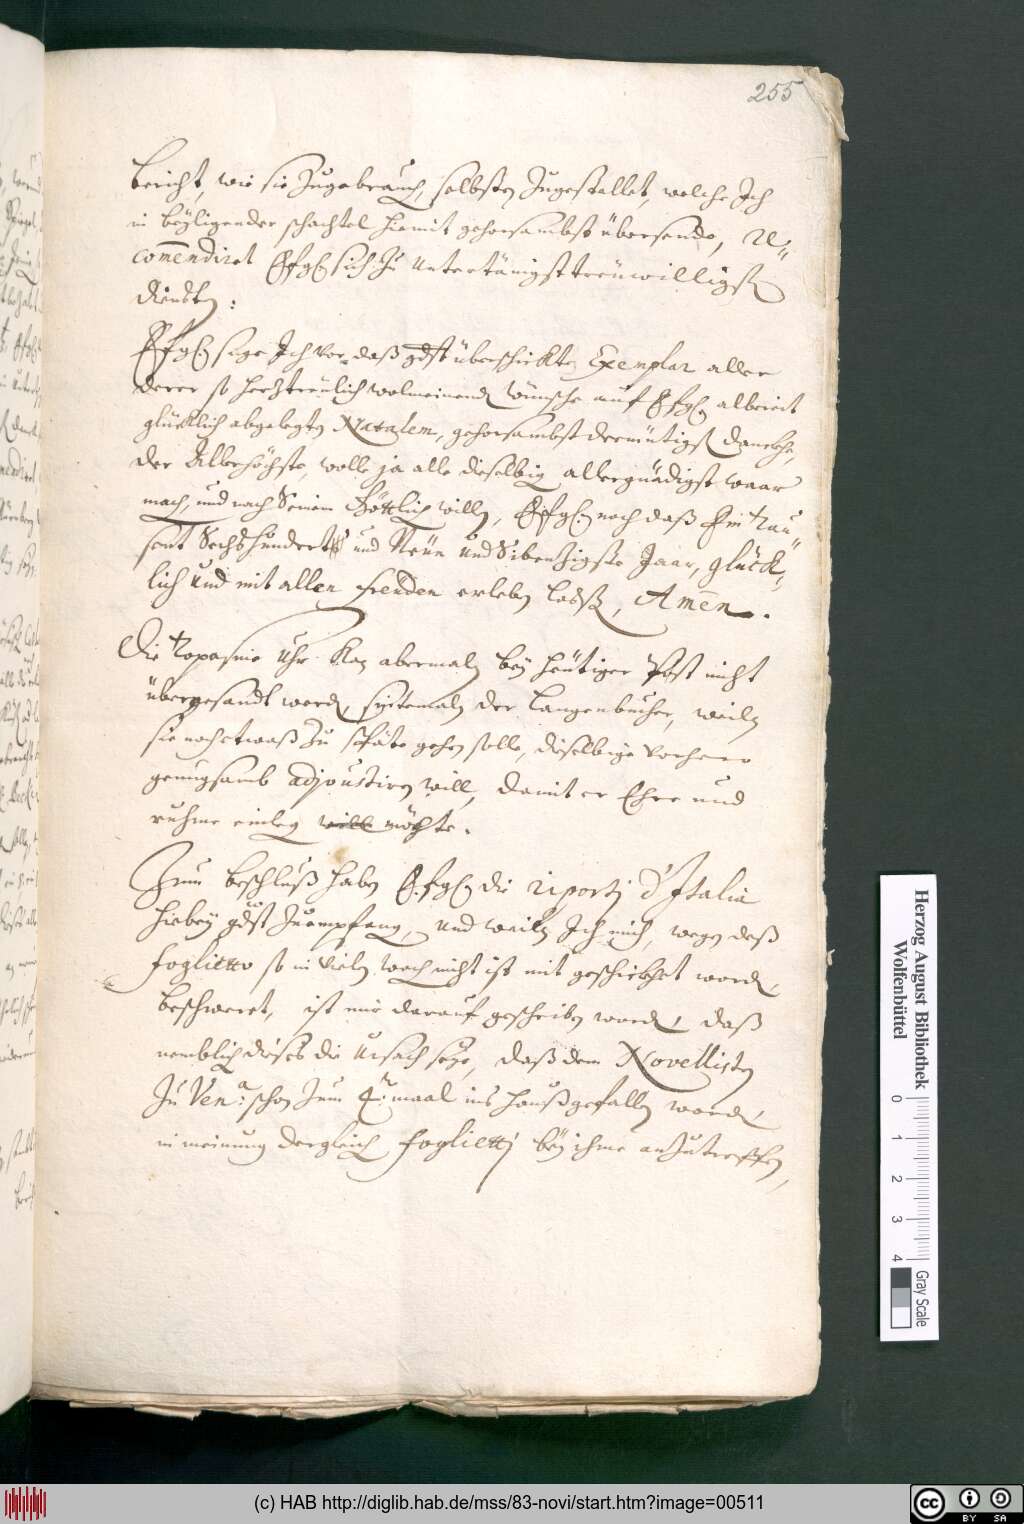 255
bericht, wie sie Zugebrauch, selbsten Zugestellet, welche Ich
in beÿligender schachtel hiemit gehorsambst übersende, re„
com̄endiret EfgE sich Zu Untertänigst treüwilligst
diensten:
EfgE sige Ich vor, daß gdst überschickte Exemplar aller
derer so hertztreülich wolmeinend wünsche auf EfgE albereit
glücklich abgelegten Natalem, gehorsambst demütigst
der Allerhöchste, wolle ja alle dieselbig allergnädigst waar
mach, und nach Seinem Göttlich willen, EfgE noch daß Ein Tau„
sent Sechshundert und Neün Und Sibenzigste Jaar, glück„
lich Und mit allen freuden erleben laßß, Amen.
Die Uhr Kan abermaln beÿ heütiger Post nicht
übergesandt werd, syntemaln der Langenbucher, weiln
sie noch etwaß Zu späte gehen solle, dieselbige vorhero
genugsamb adjoustiren will, damit er Ehre und
ruhme einleg will möchte.
Zum beschluß haben EfgE die riportj d'Italia
hiebeÿ gdst Zuempfang, Und weiln Ich mich, wegen daß
foglietto so in vielen woch nicht ist mit geschicket word,
beschweret, ist mir darauf geschriben word, daß
nemblich dises die Ursach seÿe, daß dem Novellisten
Zu Ven.ª schon Zum 4.ⁿ maal ins hauß gefallen word,
in meinung dergleich fogliettj beÿ ihme anzutreffen,
Herzog August Bibliothek
Wolfenbüttel
0 1 2 3 4
Gray Scale
(c) HAB http://diglib.hab.de/mss/83-novi/start.htm?image=00511
cc BY SA